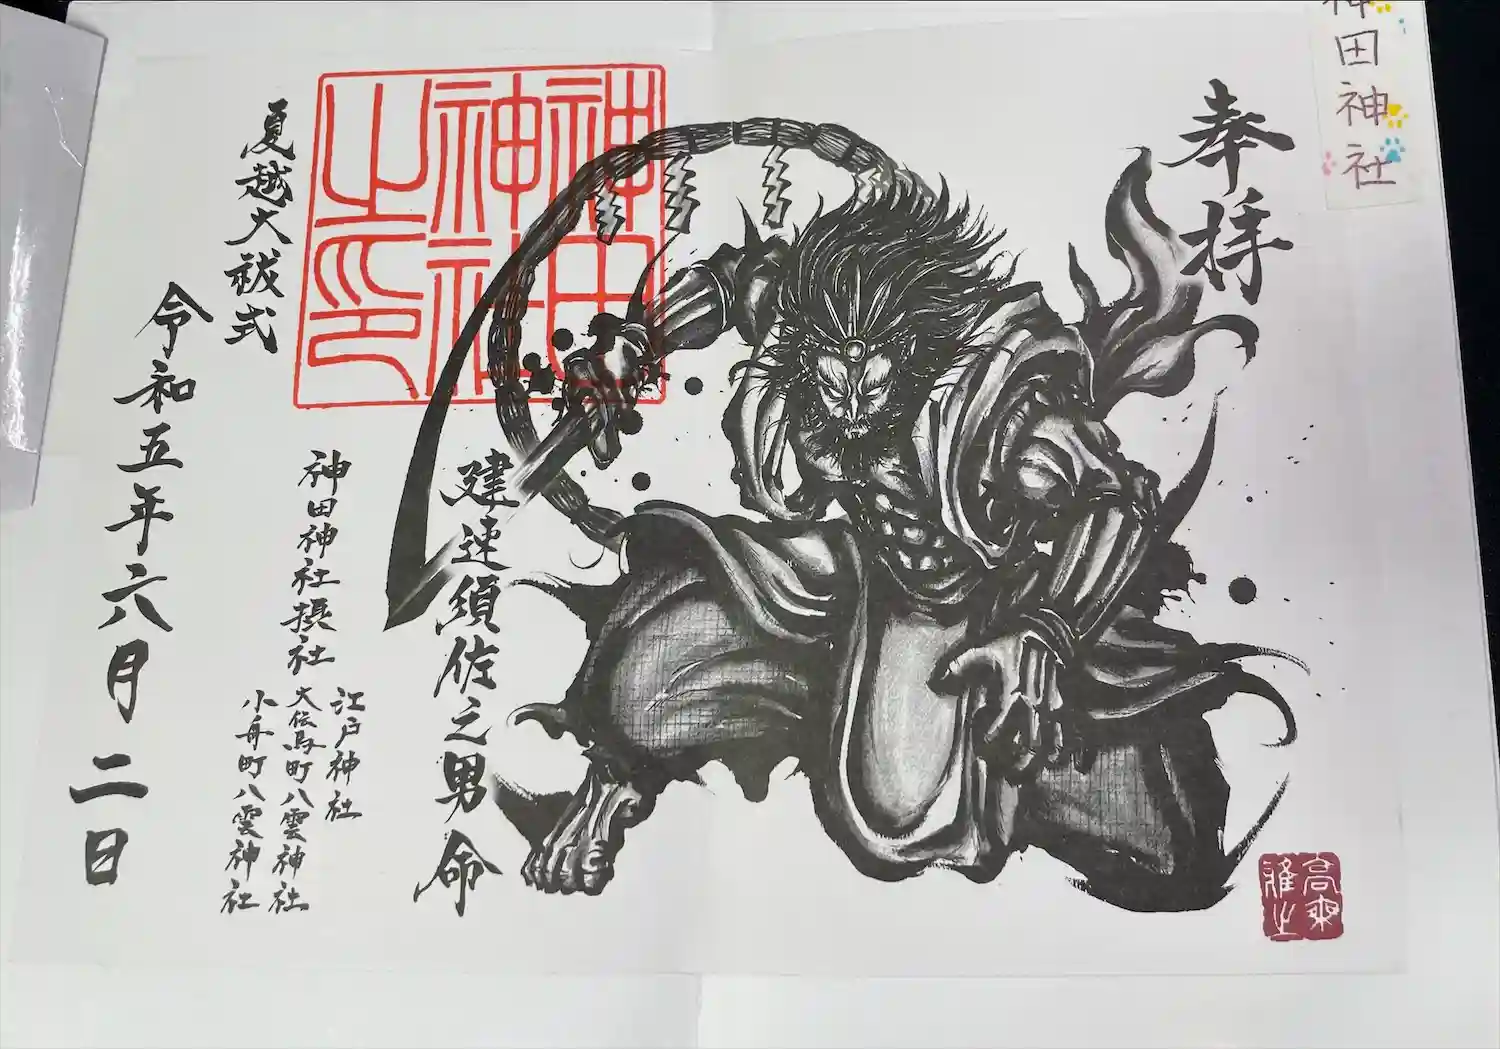 神田神社
奉拝
建速須佐之男命
神田神社之印
江戸神社
神田神社摂社
大伝馬町八雲神社
小舟町八雲神社
夏越大祓式
令和五年六月二日